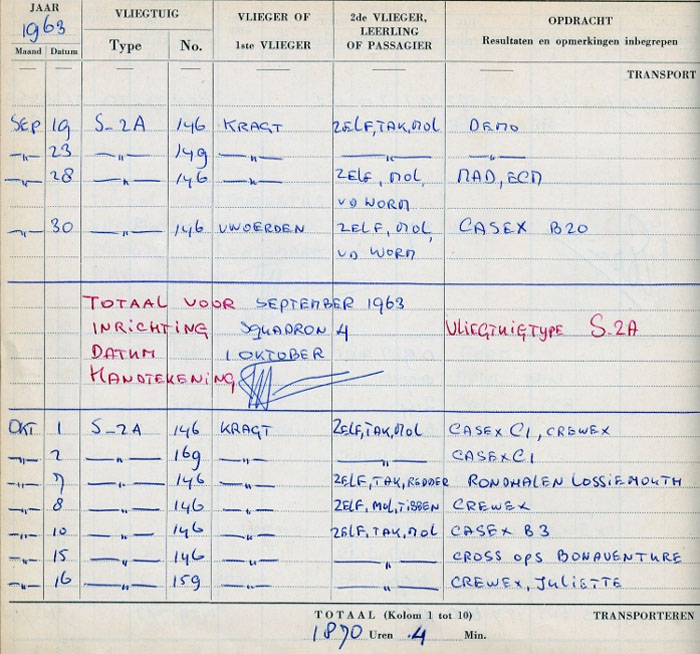 JAAR VLIEGTUIG VLIEGER OF 2de VLIEGER, OPDRACHT
1963 LEERLING
Maand Datum Type No. 1ste VLIEGER OF PASSAGIER Resultaten en opmerkingen inbegrepen
— — — — — — — TRANSPORT
SEP 19 S-2A 146 KRAGT ZELF,TAK,MOL DEMO
—"— 23 —"— 149 —"— —"— —"—
—"— 28 —"— 146 —"— ZELF, MOL, MAD, ECM
VD WORM
—"— 30 —"— 146 VWOERDEN ZELF, MOL, CASEX B20
VD WORM
TOTAAL VOOR SEPTEMBER 1963
INRICHTING SQUADRON 4 VLIEGTUIGTYPE S-2A
DATUM 1 OKTOBER
HANDTEKENING
OKT 1 S-2A 146 KRAGT ZELF,TAK,MOL CASEX C1, CREWEX
—"— 2 —"— 169 —"— —"— CASEX C1
—"— 7 —"— 146 —"— ZELF,TAK,REDDER RONDMALEN LOSSIEMOUTH
—"— 8 —"— 146 —"— ZELF, MOL,TIBBEN CREWEX
—"— 10 —"— 146 —"— ZELF,TAK,MOL CASEX B3
—"— 15 —"— 146 —"— —"— CROSS OPS BONAVENTURE
—"— 16 —"— 159 —"— —"— CREWEX, JULIETTE
TOTAAL (Kolom 1 tot 10) TRANSPORTEREN
1870 Uren .4 Min.